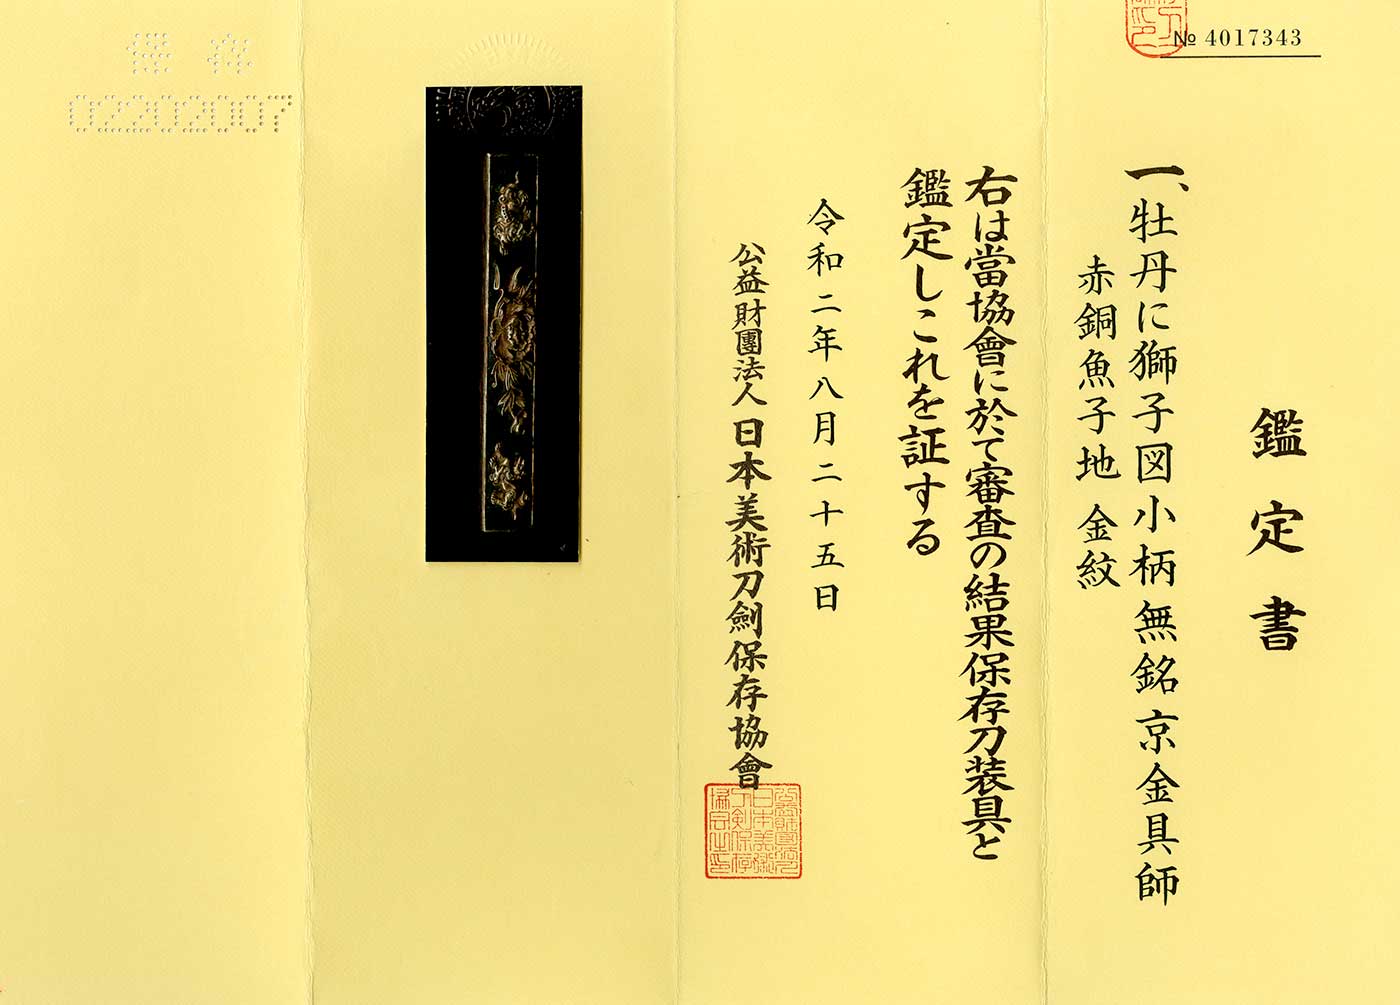 № 4017343
鑑定書
一、牡丹に獅子図小柄無銘京金具師
赤銅魚子地 金紋
右は當協會に於て審査の結果保存刀装具と
鑑定しこれを証する
令和二年八月二十五日
公益財團法人日本美術刀劍保存協會
保存
02202007